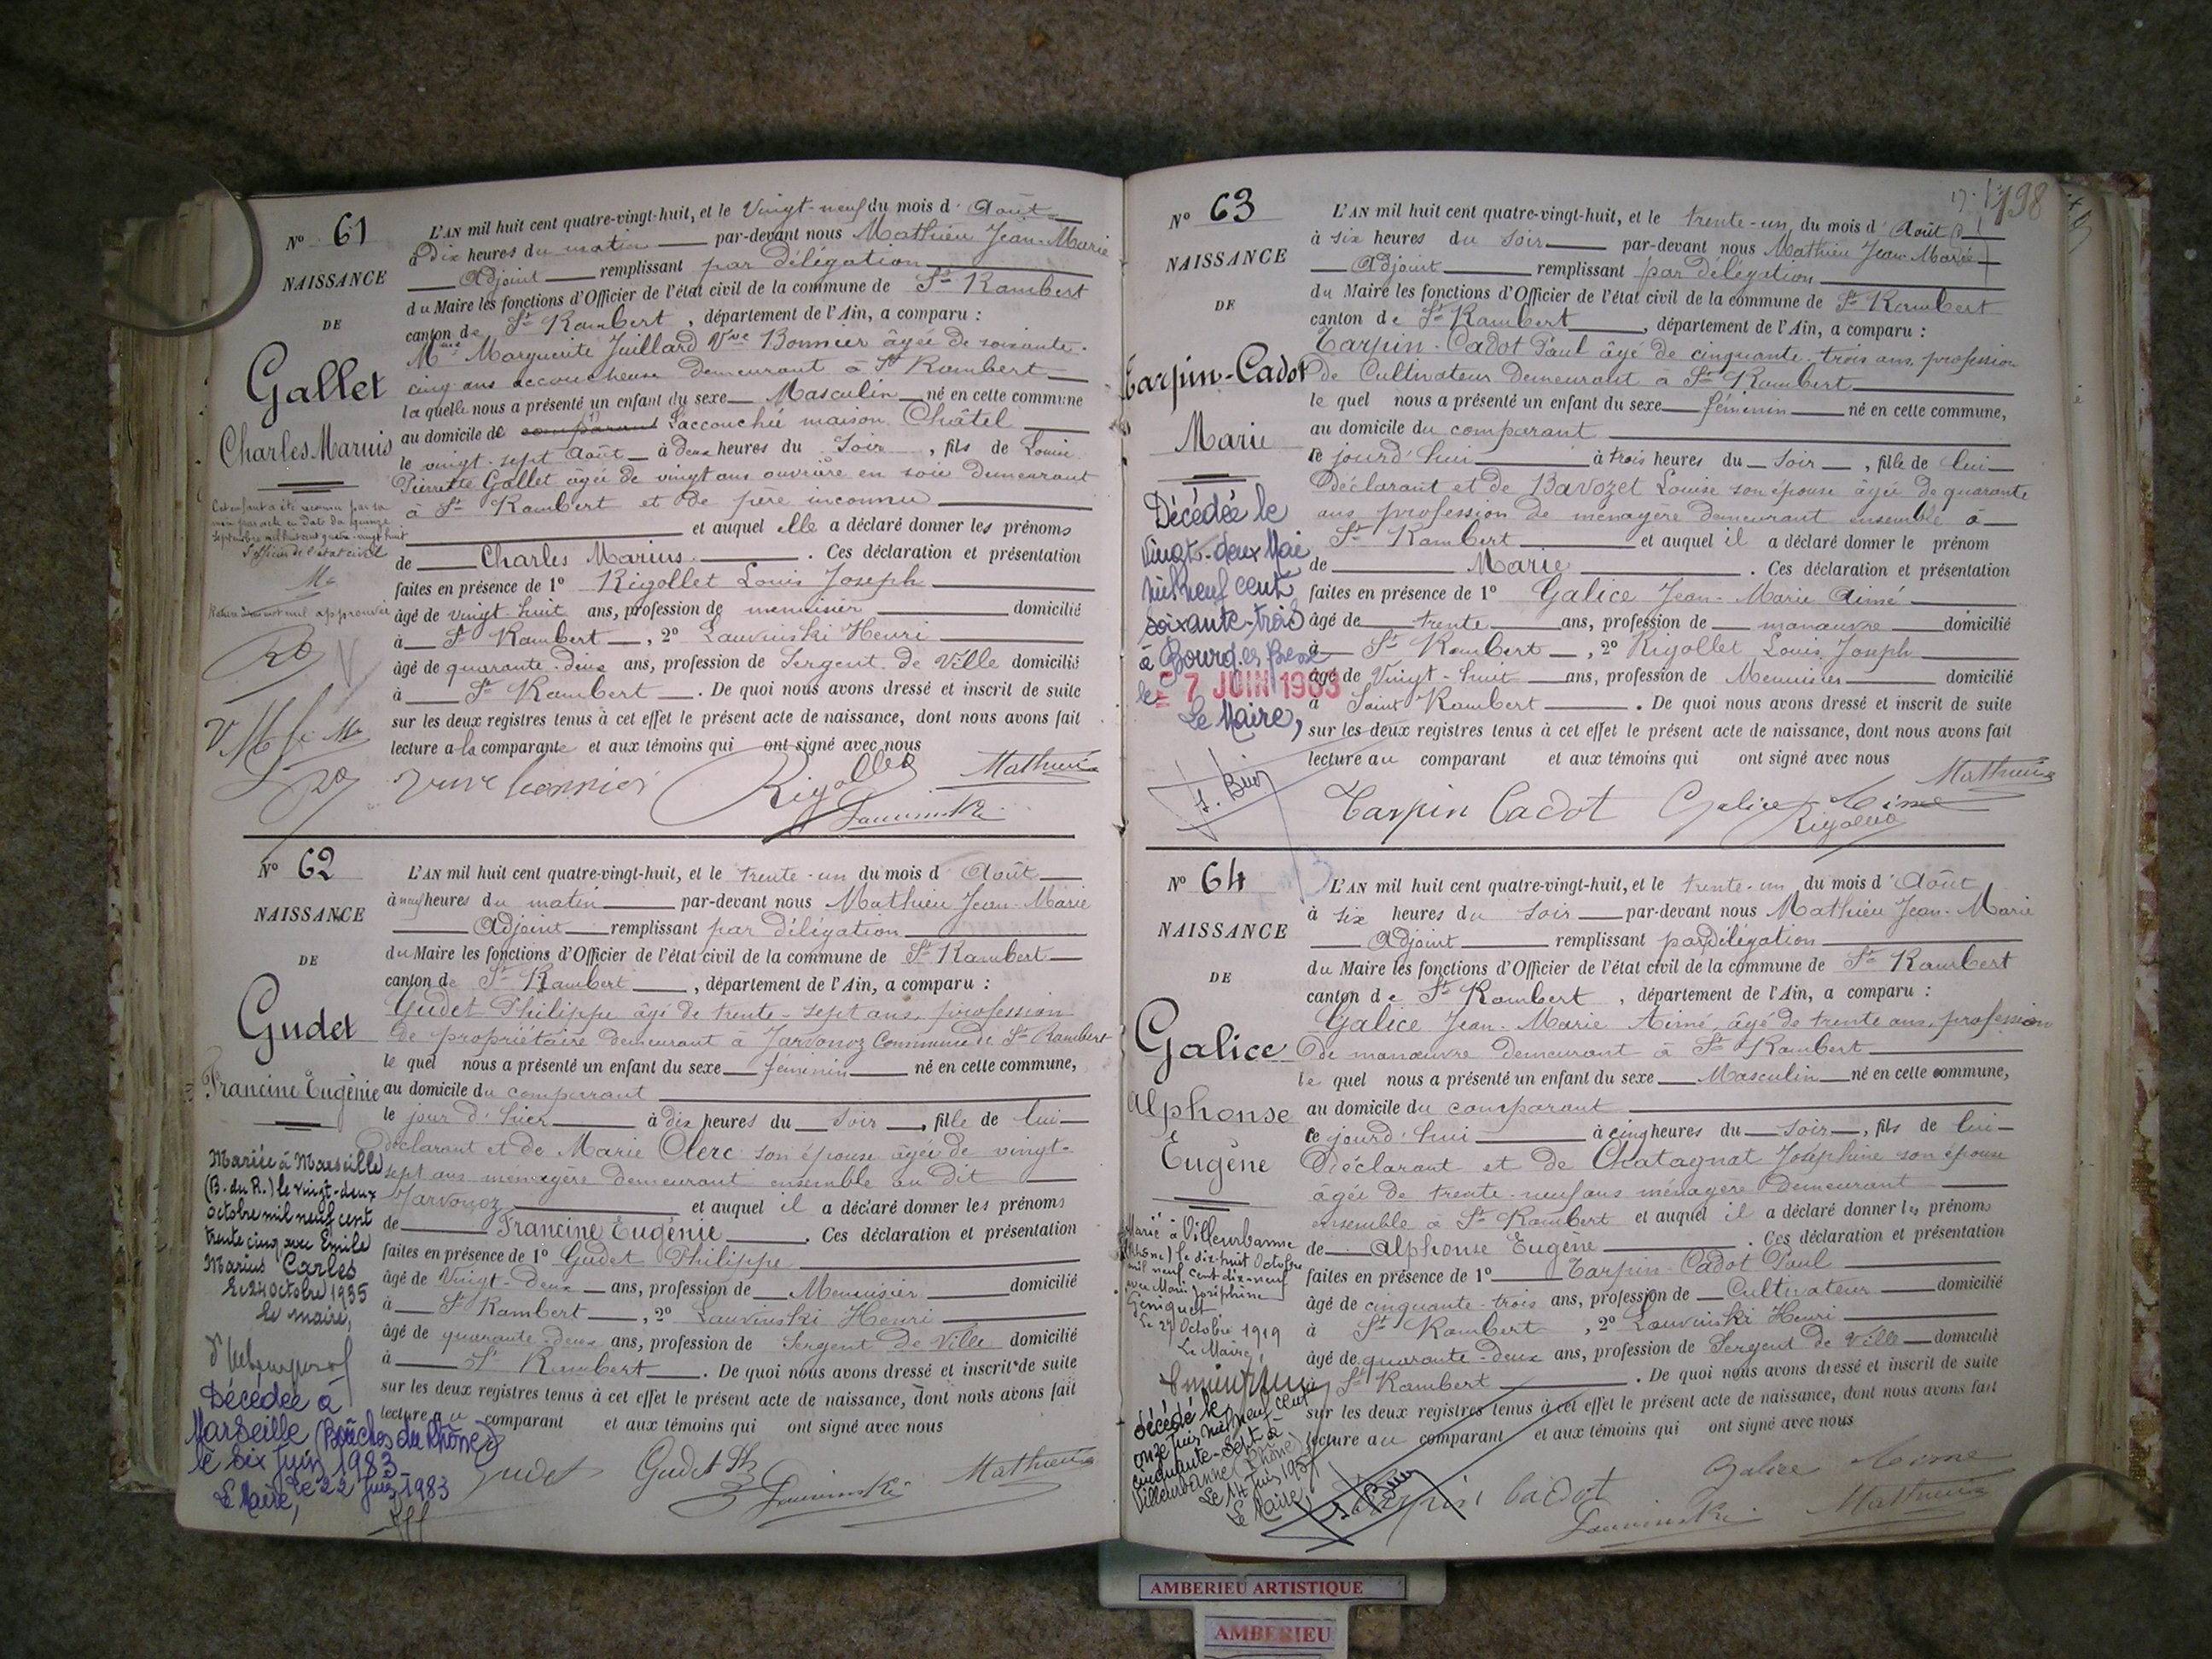 N° 61
NAISSANCE
DE
Gallet
Charles Marius
Cet enfant a été reconnu par sa
mère par acte en date du quinze
Septembre mil huit cent quatre-vingt huit
L'officier de l'état civil
L'AN mil huit cent quatre-vingt-huit, et le Vingt-neuf du mois d'Août
à Dix heures du matin par-devant nous Mathieu Jean-Marie
Adjoint remplissant par délégation
du Maire les fonctions d'Officier de l'état civil de la commune de St Rambert
canton de St Rambert, département de l'Ain, a comparu :
Mme Marguerite Juillard Vve Bonnier âgée de soixante-
cinq ans accoucheuse demeurant à St Rambert
la quelle nous a présenté un enfant du sexe Masculin né en cette commune
au domicile de comparant L'accouchée maison Châtel
le vingt-sept Août à deux heures du Soir, fils de Louise
Pierrette Gallet âgée de vingt ans ouvrière en soie demeurant
à St Rambert et de père inconnu
et auquel elle a déclaré donner les prénoms
de Charles Marius. Ces déclaration et présentation
faites en présence de 1° Rigollet Louis Joseph
âgé de vingt huit ans, profession de menuisier domicilié
à St Rambert, 2° Lauvinski Henri
âgé de quarante-deux ans, profession de Sergent de Ville domicilié
à St Rambert. De quoi nous avons dressé et inscrit de suite
sur les deux registres tenus à cet effet le présent acte de naissance, dont nous avons fait
lecture a la comparante et aux témoins qui ont signé avec nous
veuve bonnier Rigollet Mathieu
Lauvinski
N° 62
NAISSANCE
DE
Gudet
Francine Eugènie
Mariée à Marseille
(B. du R.) le vingt-deux
octobre mil neuf cent
trente cinq avec Emile
Marius Carles
Le 24 octobre 1935
Le maire,
Décédée à
Marseille (Bouches du Rhône)
le six Juin 1983
Le 22 Juin 1983
Le Maire,
L'AN mil huit cent quatre-vingt-huit, et le trente-un du mois d'Août
à neuf heures du matin par-devant nous Mathieu Jean-Marie
Adjoint remplissant par délégation
du Maire les fonctions d'Officier de l'état civil de la commune de St Rambert
canton de St Rambert, département de l'Ain, a comparu :
Gudet Philippe âgé de trente-sept ans, profession
de propriétaire demeurant à Javornoz Commune de St Rambert
le quel nous a présenté un enfant du sexe féminin né en cette commune,
au domicile du comparant
le jour d'hier à dix heures du soir, fille de lui
déclarant et de Marie Clerc son épouse âgée de vingt-
sept ans menagère demeurant ensemble au dit
Javornoz et auquel il a déclaré donner les prénoms
de Francine Eugènie. Ces déclaration et présentation
faites en présence de 1° Gudet Philippe
âgé de Vingt-Deux ans, profession de Menuisier domicilié
à St Rambert, 2° Lauvinski Henri
âgé de quarante-deux ans, profession de Sergent de Ville domicilié
à St Rambert. De quoi nous avons dressé et inscrit de suite
sur les deux registres tenus à cet effet le présent acte de naissance, dont nous avons fait
lecture au comparant et aux témoins qui ont signé avec nous
gudet Gudet Ph Lauvinski Mathieu
198
N° 63
NAISSANCE
DE
Tarpin-Cadot
Marie
Décédée le
vingt-deux Mai
mil neuf cent
soixante-trois
à Bourg-en-Bresse
le 7 JUIN 1963
Le Maire,
L'AN mil huit cent quatre-vingt-huit, et le trente-un du mois d'Août
à six heures du Soir par-devant nous Mathieu Jean-Marie
Adjoint remplissant par délégation
du Maire les fonctions d'Officier de l'état civil de la commune de St Rambert
canton de St Rambert, département de l'Ain, a comparu :
Tarpin-Cadot Paul âgé de cinquante-trois ans, profession
de Cultivateur demeurant à St Rambert
le quel nous a présenté un enfant du sexe féminin né en cette commune,
au domicile du comparant
ce jourd'hui à trois heures du Soir, fille de lui
déclarant et de Bavozet Louise son épouse âgée de quarante
ans profession de menagère demeurant ensemble à
St Rambert et auquel il a déclaré donner le prénom
de Marie. Ces déclaration et présentation
faites en présence de 1° Galice Jean-Marie Aimé
âgé de trente ans, profession de manœuvre domicilié
à St Rambert, 2° Rigollet Louis Joseph
âgé de Vingt-huit ans, profession de Menuisier domicilié
à Saint Rambert. De quoi nous avons dressé et inscrit de suite
sur les deux registres tenus à cet effet le présent acte de naissance, dont nous avons fait
lecture au comparant et aux témoins qui ont signé avec nous
Tarpin Cadot Galice Aimé Mathieu
Rigollet
N° 64
NAISSANCE
DE
Galice
Alphonse
Eugène
Marié à Villeurbanne
(Rhône) le dix-huit Octobre
mil neuf cent dix-neuf
avec Marie Joséphine
Geniquet
Le 27 Octobre 1919
Le Maire,
Décédé le
onze juin mil neuf cent
cinquante-sept à
Villeurbanne (Rhône)
Le 14 juin 1957
Le Maire,
L'AN mil huit cent quatre-vingt-huit, et le trente-un du mois d'Août
à six heures du soir par-devant nous Mathieu Jean-Marie
Adjoint remplissant par délégation
du Maire les fonctions d'Officier de l'état civil de la commune de St Rambert
canton de St Rambert, département de l'Ain, a comparu :
Galice Jean-Marie Aimé, âgé de trente ans, profession
de manœuvre demeurant à St Rambert
le quel nous a présenté un enfant du sexe Masculin né en cette commune,
au domicile du comparant
ce jourd'hui à cinq heures du soir, fils de lui
Déclarant et de Chatagnat Joséphine son épouse
âgée de trente-neuf ans ménagère demeurant
ensemble à St Rambert et auquel il a déclaré donner les prénoms
de Alphonse Eugène. Ces déclaration et présentation
faites en présence de 1° Tarpin-Cadot Paul
âgé de cinquante-trois ans, profession de Cultivateur domicilié
à St Rambert, 2° Lauvinski Henri
âgé de quarante-deux ans, profession de Sergent de Ville domicilié
à St Rambert. De quoi nous avons dressé et inscrit de suite
sur les deux registres tenus à cet effet le présent acte de naissance, dont nous avons fait
lecture au comparant et aux témoins qui ont signé avec nous
Tarpin Cadot Galice Aimé
Lauvinski Mathieu
AMBERIEU ARTISTIQUE
AMBERIEU